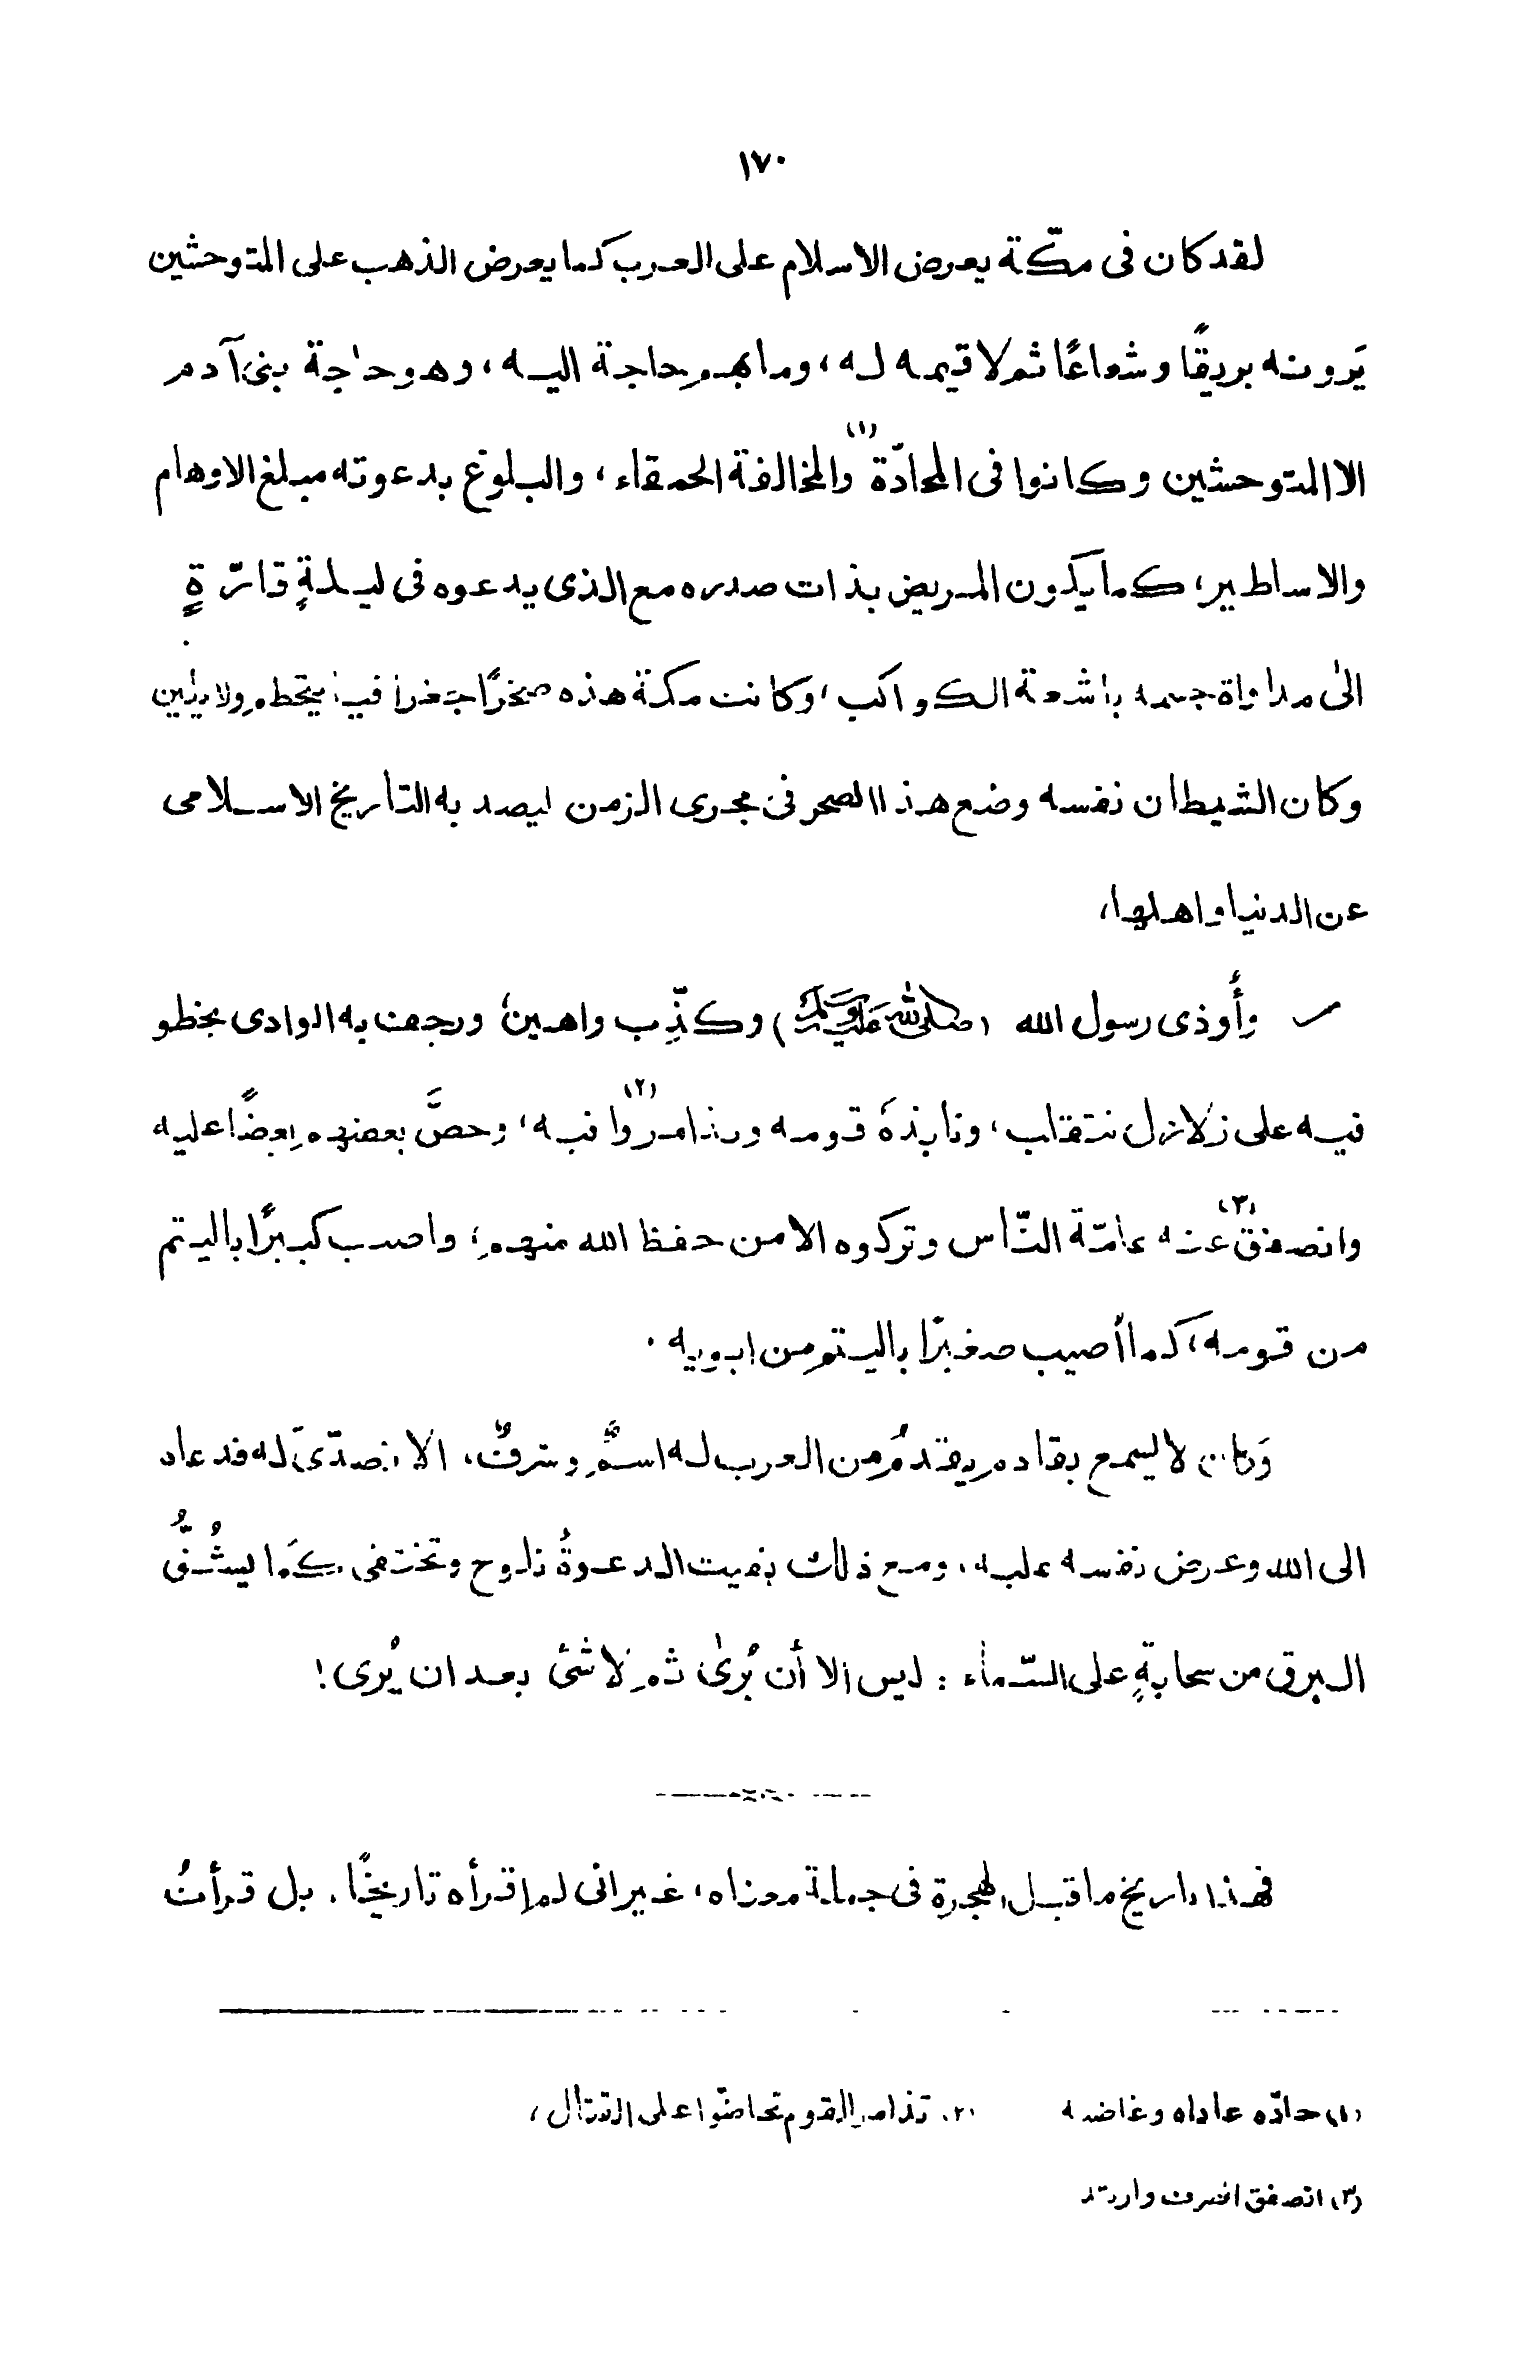 ١٧٠
لقد كان فى مكّة يعرض الاسلام على العرب كما يعرض الذهب على المتوحشين
يَرونه بريقًا وشعاعًا ثم لا قيمه له، وما بهم حاجة اليه، وهو حاجة بنى آدم
الا المتوحشين وكانوا فى المحادّة (١) والمخالفة الحمقاء، والبلوغ بدعوته مبلغ الاوهام
والاساطير، كما يكون المريض بذات صدره مع الذى يدعوه فى ليلةٍ قارّةٍ
الى مداواة جسمه باشعة الكواكب، وكانت مكة هذه صخرًا جغرافيا يتحطم ولا يلين
وكان الشيطان نفسه وضع هذا الصخر فى مجرى الزمن ليصد به التأريخ الاسلامى
عن الدنيا واهلها،
وأُوذى رسول الله (صلى الله عليه وسلم) وكذِّب واهين، ورجف به الوادى يخطو
فيه على زلازل تتقلب، ونابذهُ قومه وتذامروا (٢) فيه، وحضَّ بعضهم بعضًا عليه
وانصفق (٣) عنه عامّة النّاس وتركوه الا من حفظ الله منهم، واصيب كبيرًا باليتم
من قومه، كما أُصيب صغيرًا باليتم من ابويه.
وَكان لا يسمع بقادم يقدمُ من العرب له اسمٌ وشرفٌ، الا تصدّىَ له فدعاه
الى الله وعرض نفسه عليه، ومع ذلك بقيت الدعوةُ تلوح وتختفى كَما يشُقُّ
البرق من سحابةٍ على السّماء : ليس الا أن يُرىٰ ثم لا شئ بعد ان يُرى!
فهذا تاريخ ما قبل الهجرة فى جملة معناه، غير انى لم اقرأه تاريخًا. بل قرأتُ
(١) حادّه عاداه وغاضبه (٢) تذامر القوم تحاضّوا على القتال،
(٣) انصفق انصرف وارتد